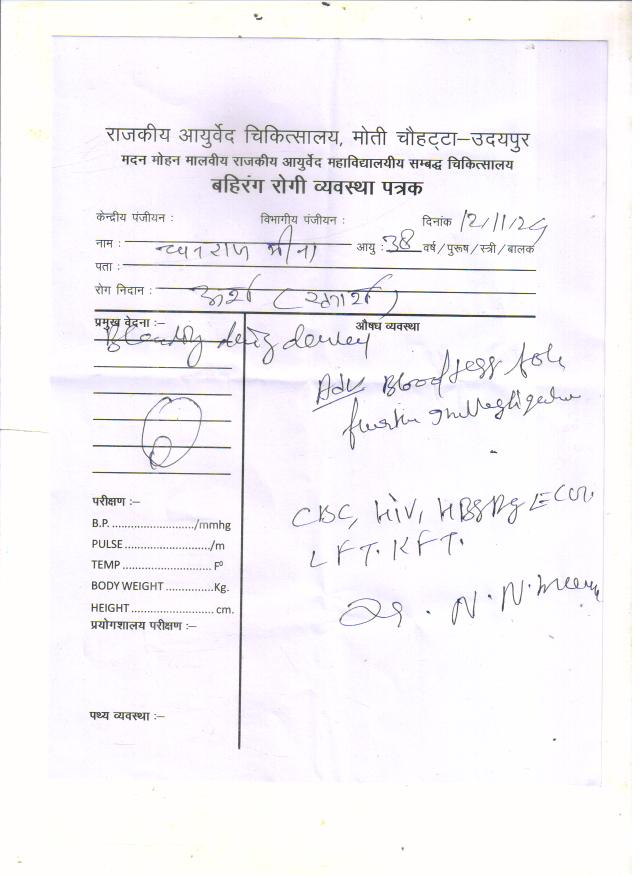 राजकीय आयुर्वेद चिकित्सालय, मोती चौहट्टा–उदयपुर
मदन मोहन मालवीय राजकीय आयुर्वेद महाविद्यालयीय सम्बद्ध चिकित्सालय
बहिरंग रोगी व्यवस्था पत्रक
केन्द्रीय पंजीयन : विभागीय पंजीयन : दिनांक 12/11/24
नाम : राज मीना आयु : 38 वर्ष / पुरूष / स्त्री / बालक
पता :
रोग निदान : अर्श (रक्तार्श)
प्रमुख वेदना :–
औषध व्यवस्था
Adv Blood test for
CBC, HIV, HBsAg ECG,
LFT. KFT.
Dr. N. N. Meena
परीक्षण :–
B.P. ........................../mmhg
PULSE ............................/m
TEMP ............................ F⁰
BODY WEIGHT ...............Kg.
HEIGHT .......................... cm.
प्रयोगशालय परीक्षण :–
पथ्य व्यवस्था :–